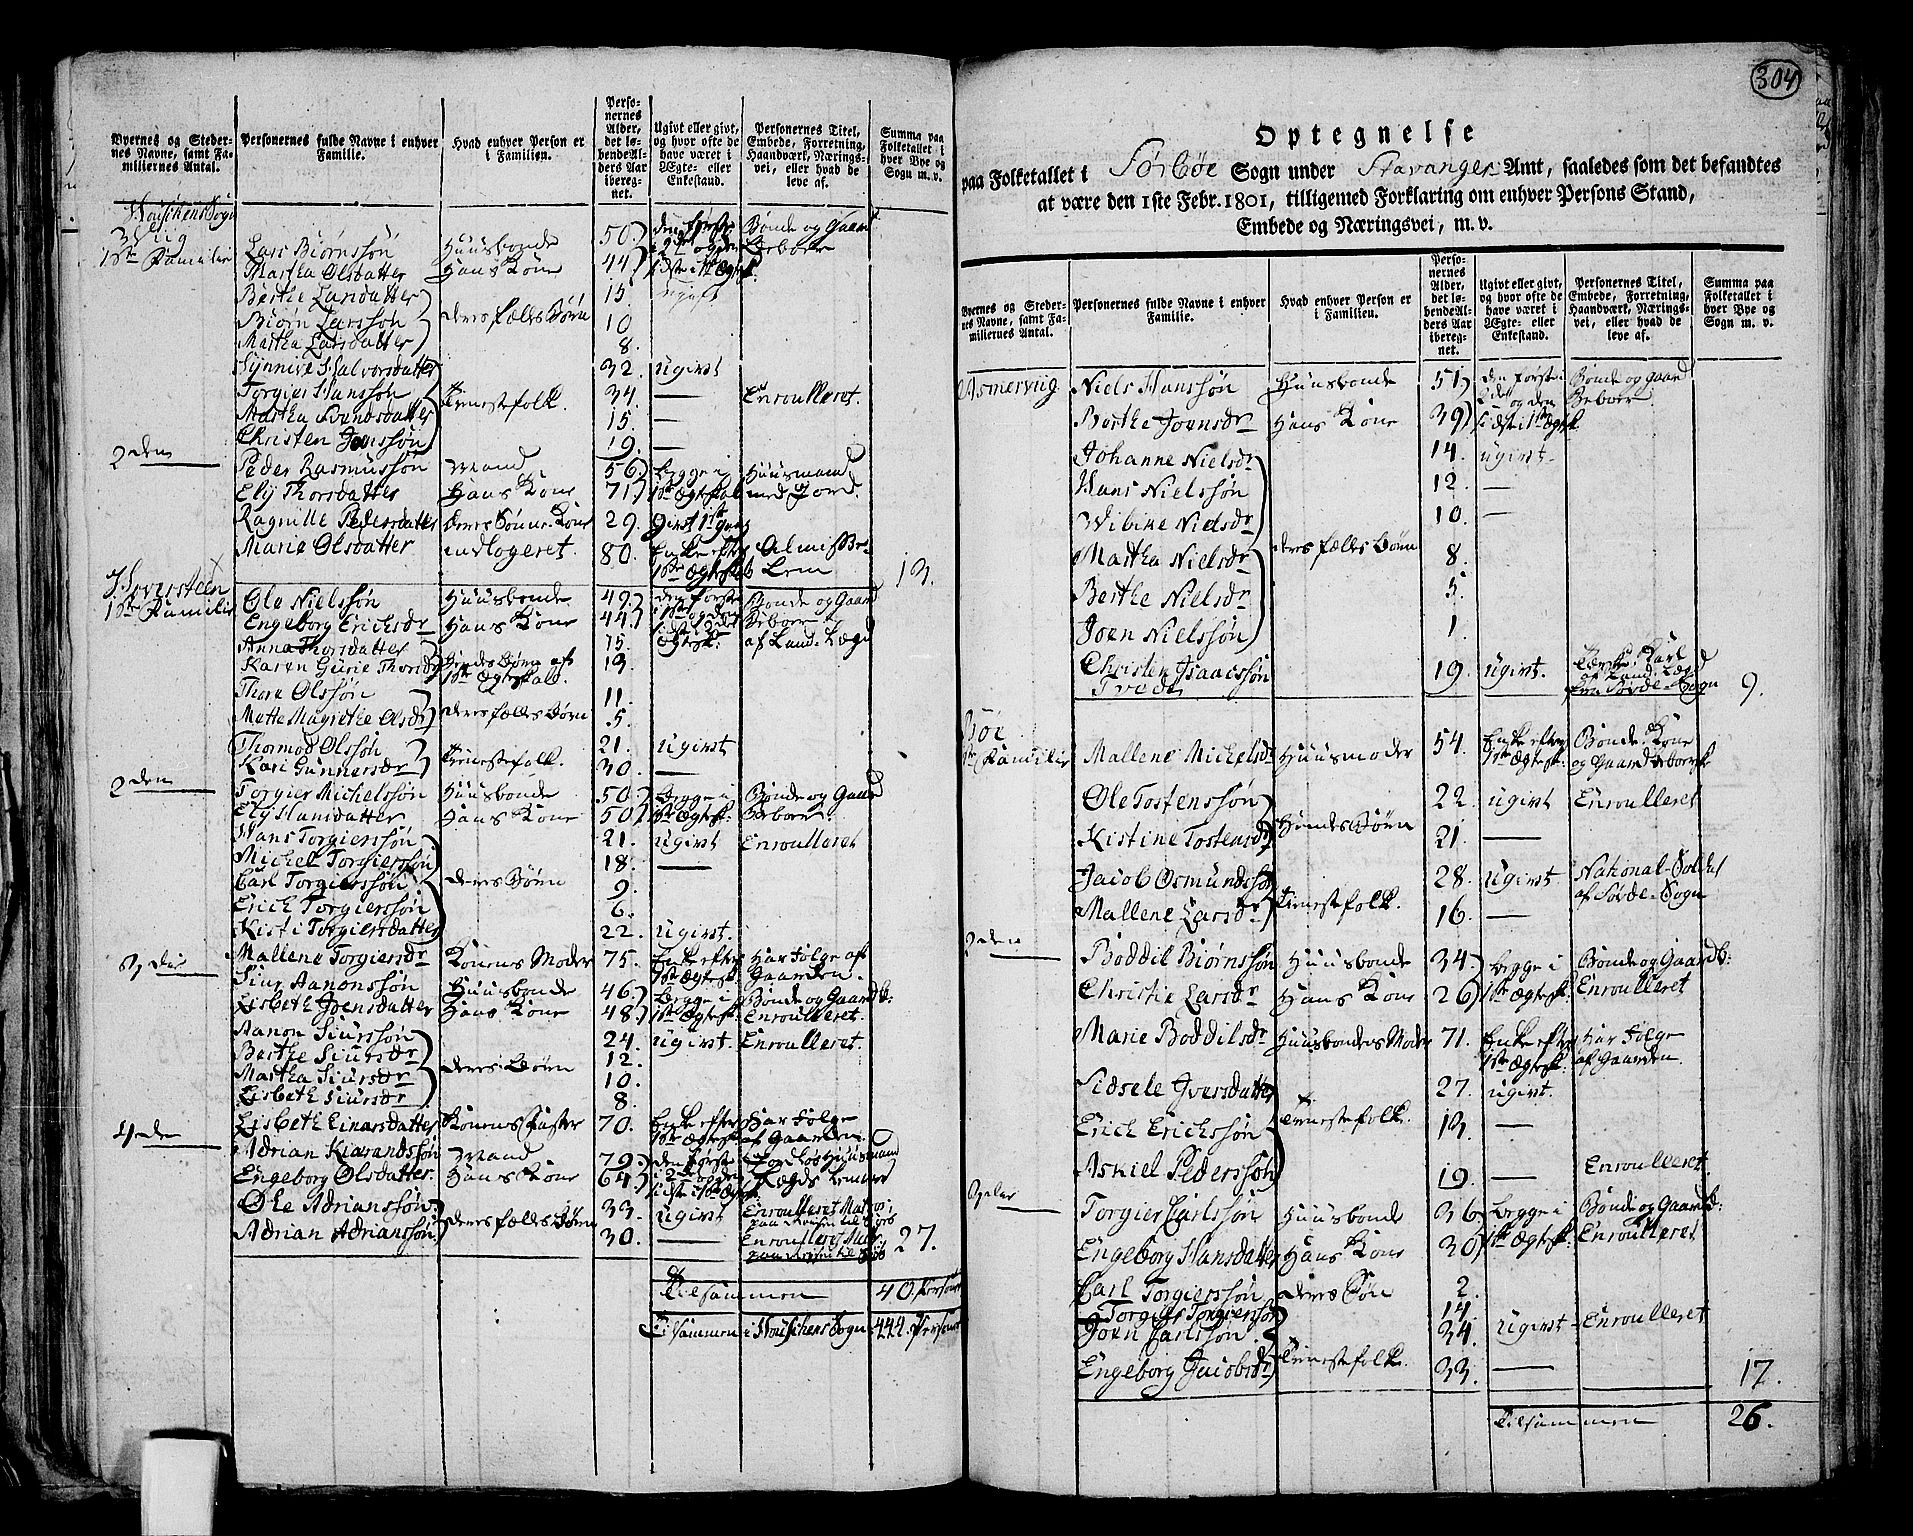 Byernes og Steder-
nes Navne, samt Fa-
miliernes Antal.
Personernes fulde Navne i enhver
Familie.
Hvad enhver Person er
i Familien.
Perso-
nernes
Alder,
det lø-
bende Al-
ders Aar
iberegnet.
Ugivt eller givt,
og hvor ofte de
have været i
Ægte- eller
Enkestand.
Personernes Titel,
Embede, Forretning,
Haandværk, Nærings-
vei, eller hvad de
leve af.
Summa paa
Folketallet i
hver Bye og
Sogn m. v.
1ste Familie Lars Biørnssøn Huusbonde 50. den første Bonde og Gaard
Martha Olsdatter Hans Kone 44. sidst i 1ste Ægtesk. Beboere
Berthe Larsdatter 15. ugift
Biørn Larssøn deres fælles Børn 10
Martha Larsdatter 8.
Synnive Halvorsdatter 32. ugivt
Torgier Hanssøn Tienestefolk. 34. — Enroulleret.
Martha Svendsdatter 15. —
Christen Jonssøn 19. —
2den Peder Rasmussøn Mand 56. begge i Huusmand
Elij Thorsdatter Hans Kone 71. 1ste Ægteskab med Jord.
Ragnille Pedersdatter deres Sønne-Kone 29. givt 1ste gang
Marie Olsdatter indlogeret. 80. Enke efter Almisse-
1ste Ægteskab Lem 13.
1ste Familie Ole Nielssøn Huusbonde 49. den første Bonde og Gaard
Engeborg Ericksdr Hans Kone 44. i 1ste og den Beboere og
Anna Thorsdatter 15. Ægtesk: af Land-Lægd
Karen Gurie Thorsdr 13
Thore Olssøn 11.
Mette Magrethe Olsdr deres fælles Børn 5.
Thormod Olssøn Tienestefolk. 21. ugivt
Kari Gunnersdr 30. —
2den Torgier Michelssøn Huusbonde 50. begge i Bonde og Gaard
Elij Hansdatter Hans Kone 50. 1ste Ægtesk. Beboer.
Hans Torgierssøn 21. ugivt Enroulleret
Michel Torgierssøn 18. —
Carl Torgierssøn deres Børn 9.
Erich Torgierssøn 6.
Kisti Torgiersdatter 22. ugivt.
Mallene Torgiersdr Konens Moder 75. Enke efter Har Følge af
1ste Ægtesk. Gaarden.
3die Siur Aanonssøn Huusbonde 46. begge i Bonde og Gaardb:
Lisbeth Joensdatter Hans Kone 48. 1ste Ægtesk. Enroulleret.
Aanon Siurssøn 24. ugivt. Enroulleret.
Berthe Siursdr deres Børn 12.
Martha Siursdr 10.
Lisbeth Siursdr 8.
Lisbeth Einarsdatter Konens Faster 70. Enke efter Har Følge
1ste Ægtesk. af Gaarden
4den Adrian Kiærandssøn Mand 79. den første Jordløs Huusmand
Engeborg Olsdatter. Hans Kone 64. i 2den og den Lægds Lemmer
sidste i 1ste Ægtesk:
Ole Adrianssøn deres fælles Børn 33. ugivt Enroulleret
Adrian Adrianssøn 30. — Enroulleret 27.
Tilsammen 40 Personer
Tilsammen i Houschens Sogn 444. Personer
304
Optegnelse
paa Folketallet i Sørbøe Sogn under Stavanger Amt, saaledes som det befandtes
at være den 1ste Febr. 1801, tilligemed Forklaring om enhver Persons Stand,
Embede og Næringsvei, m. v.
Byernes og Steder-
nes Navne, samt Fa-
miliernes Antal.
Personernes fulde Navne i enhver
Familie.
Hvad enhver Person er
i Familien.
Perso-
nernes
Alder,
det lø-
bende Al-
ders Aar
iberegnet.
Ugivt eller givt,
og hvor ofte de
have været i
Ægte- eller
Enkestand.
Personernes Titel,
Embede, Forretning,
Haandværk, Nærings-
vei, eller hvad de
leve af.
Summa paa
Folketallet i
hver Bye og
Sogn m. v.
Asmerviig Niels Hanssøn Huusbonde 51. den første i Bonde og Gaard
Berthe Joensdr Hans Kone 39. sidst i 1ste Ægtesk Beboer
Johanne Nielsdr 14. ugivt
Hans Nielssøn 12. —
Wibike Nielsdr 10. —
Martha Nielsdr deres fælles Børn 8.
Berthe Nielsdr 5.
Joen Nielssøn 1.
Christen Isaacssøn 19. ugivt.
fra Førde-Sogn 9.
Bøe
1ste Familie Mallene Michelsdr Huusmoder 54. Enke efter Bonde Kone
1ste Ægtesk: og Gaardbeboersk
Ole Tostenssøn 22. ugivt Enroulleret
Kistine Tostensdr Hendes Børn 21. —
Jacob Osmundssøn 28. ugivt. National-Soldat
Mallene Larsdr Tienestefolk. 16. —
2den Boddil Biørnssøn Huusbonde 34. begge i Bonde og Gaardb:
Christie Larsdr Hans Kone 26. 1ste Ægtesk. Enroulleret
Marie Boddilsdr Huusbondens Moder 71. Enke efter Har Følge
1ste Ægtesk. af Gaarden.
Sidsele Iversdatter 27. ugivt.
Erich Erichssøn Tienestefolk. 13. —
Askiel Pederssøn 19. — Enroulleret.
3die Torgier Carlssøn Huusbonde 36. begge i Bonde og Gaardb:
Engeborg Hansdatter Hans Kone 30. 1ste Ægtesk: Enroulleret
Carl Torgierssøn deres Søn 2.
Torgils Torgierssøn 14.
Joen Carlssøn. 34. ugivt Enroulleret
Engeborg Jacobsdr Tienestefolk. 33. — 17.
Tilsammen 26.